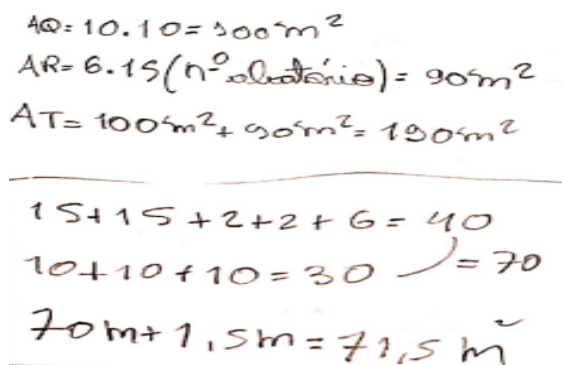 AQ= 10.10= 100m²
AR= 6.15(nº aleatório)= 90m²
AT= 100m²+ 90m²= 190m²
15+15+2+2+6= 40
10+10+10=30 =70
70m+1,5m=71,5 m